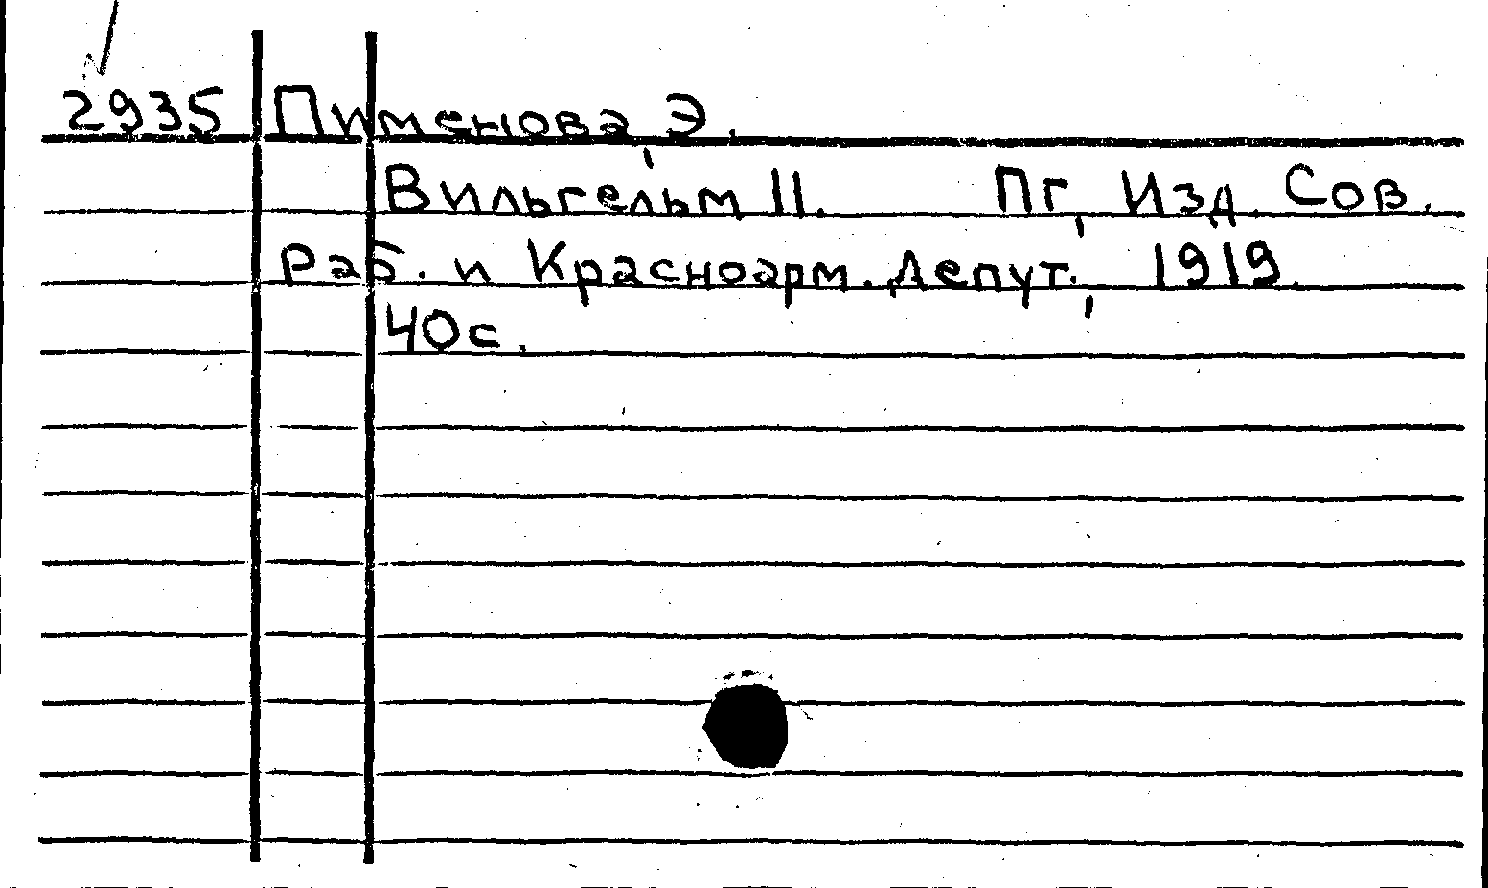 2935 Пименова, Э.
Вильгельм II. Пг, Изд. Сов.
раб. и Красноарм. депут., 1919.
40с.